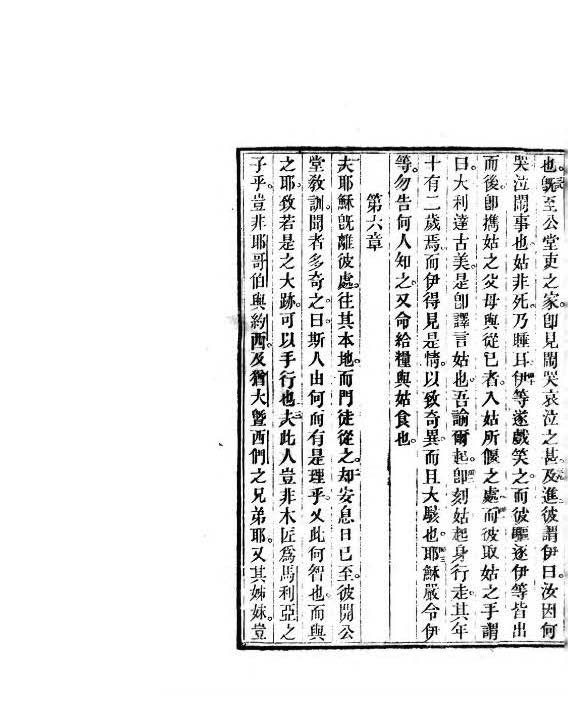 也。旣至公堂吏之家卽見鬧哭哀泣之甚及進彼謂伊曰汝因何
哭泣鬧事也姑非死乃睡耳伊等遂戲笑之而彼驅逐伊等皆出
而後卽攜姑之父母與從已者入姑所偃之處而彼取姑之手謂
曰大利達古美是卽譯言姑也吾諭爾起卽刻姑起身行走其年
十有二歲焉而伊得見是情以致奇異而且大駭也耶穌嚴令伊
等勿吿何人知之又命給糧與姑食也
第六章
夫耶穌旣離彼處往其本地而門徒從之却安息日已至彼開公
堂敎訓聞者多奇之曰斯人由何而有是理乎又此何智也而與
之耶致若是之大跡可以手行也夫此人豈非木匠爲馬利亞之
子乎豈非耶哥伯與約西及猶大曁西們之兄弟耶又其姊妹豈